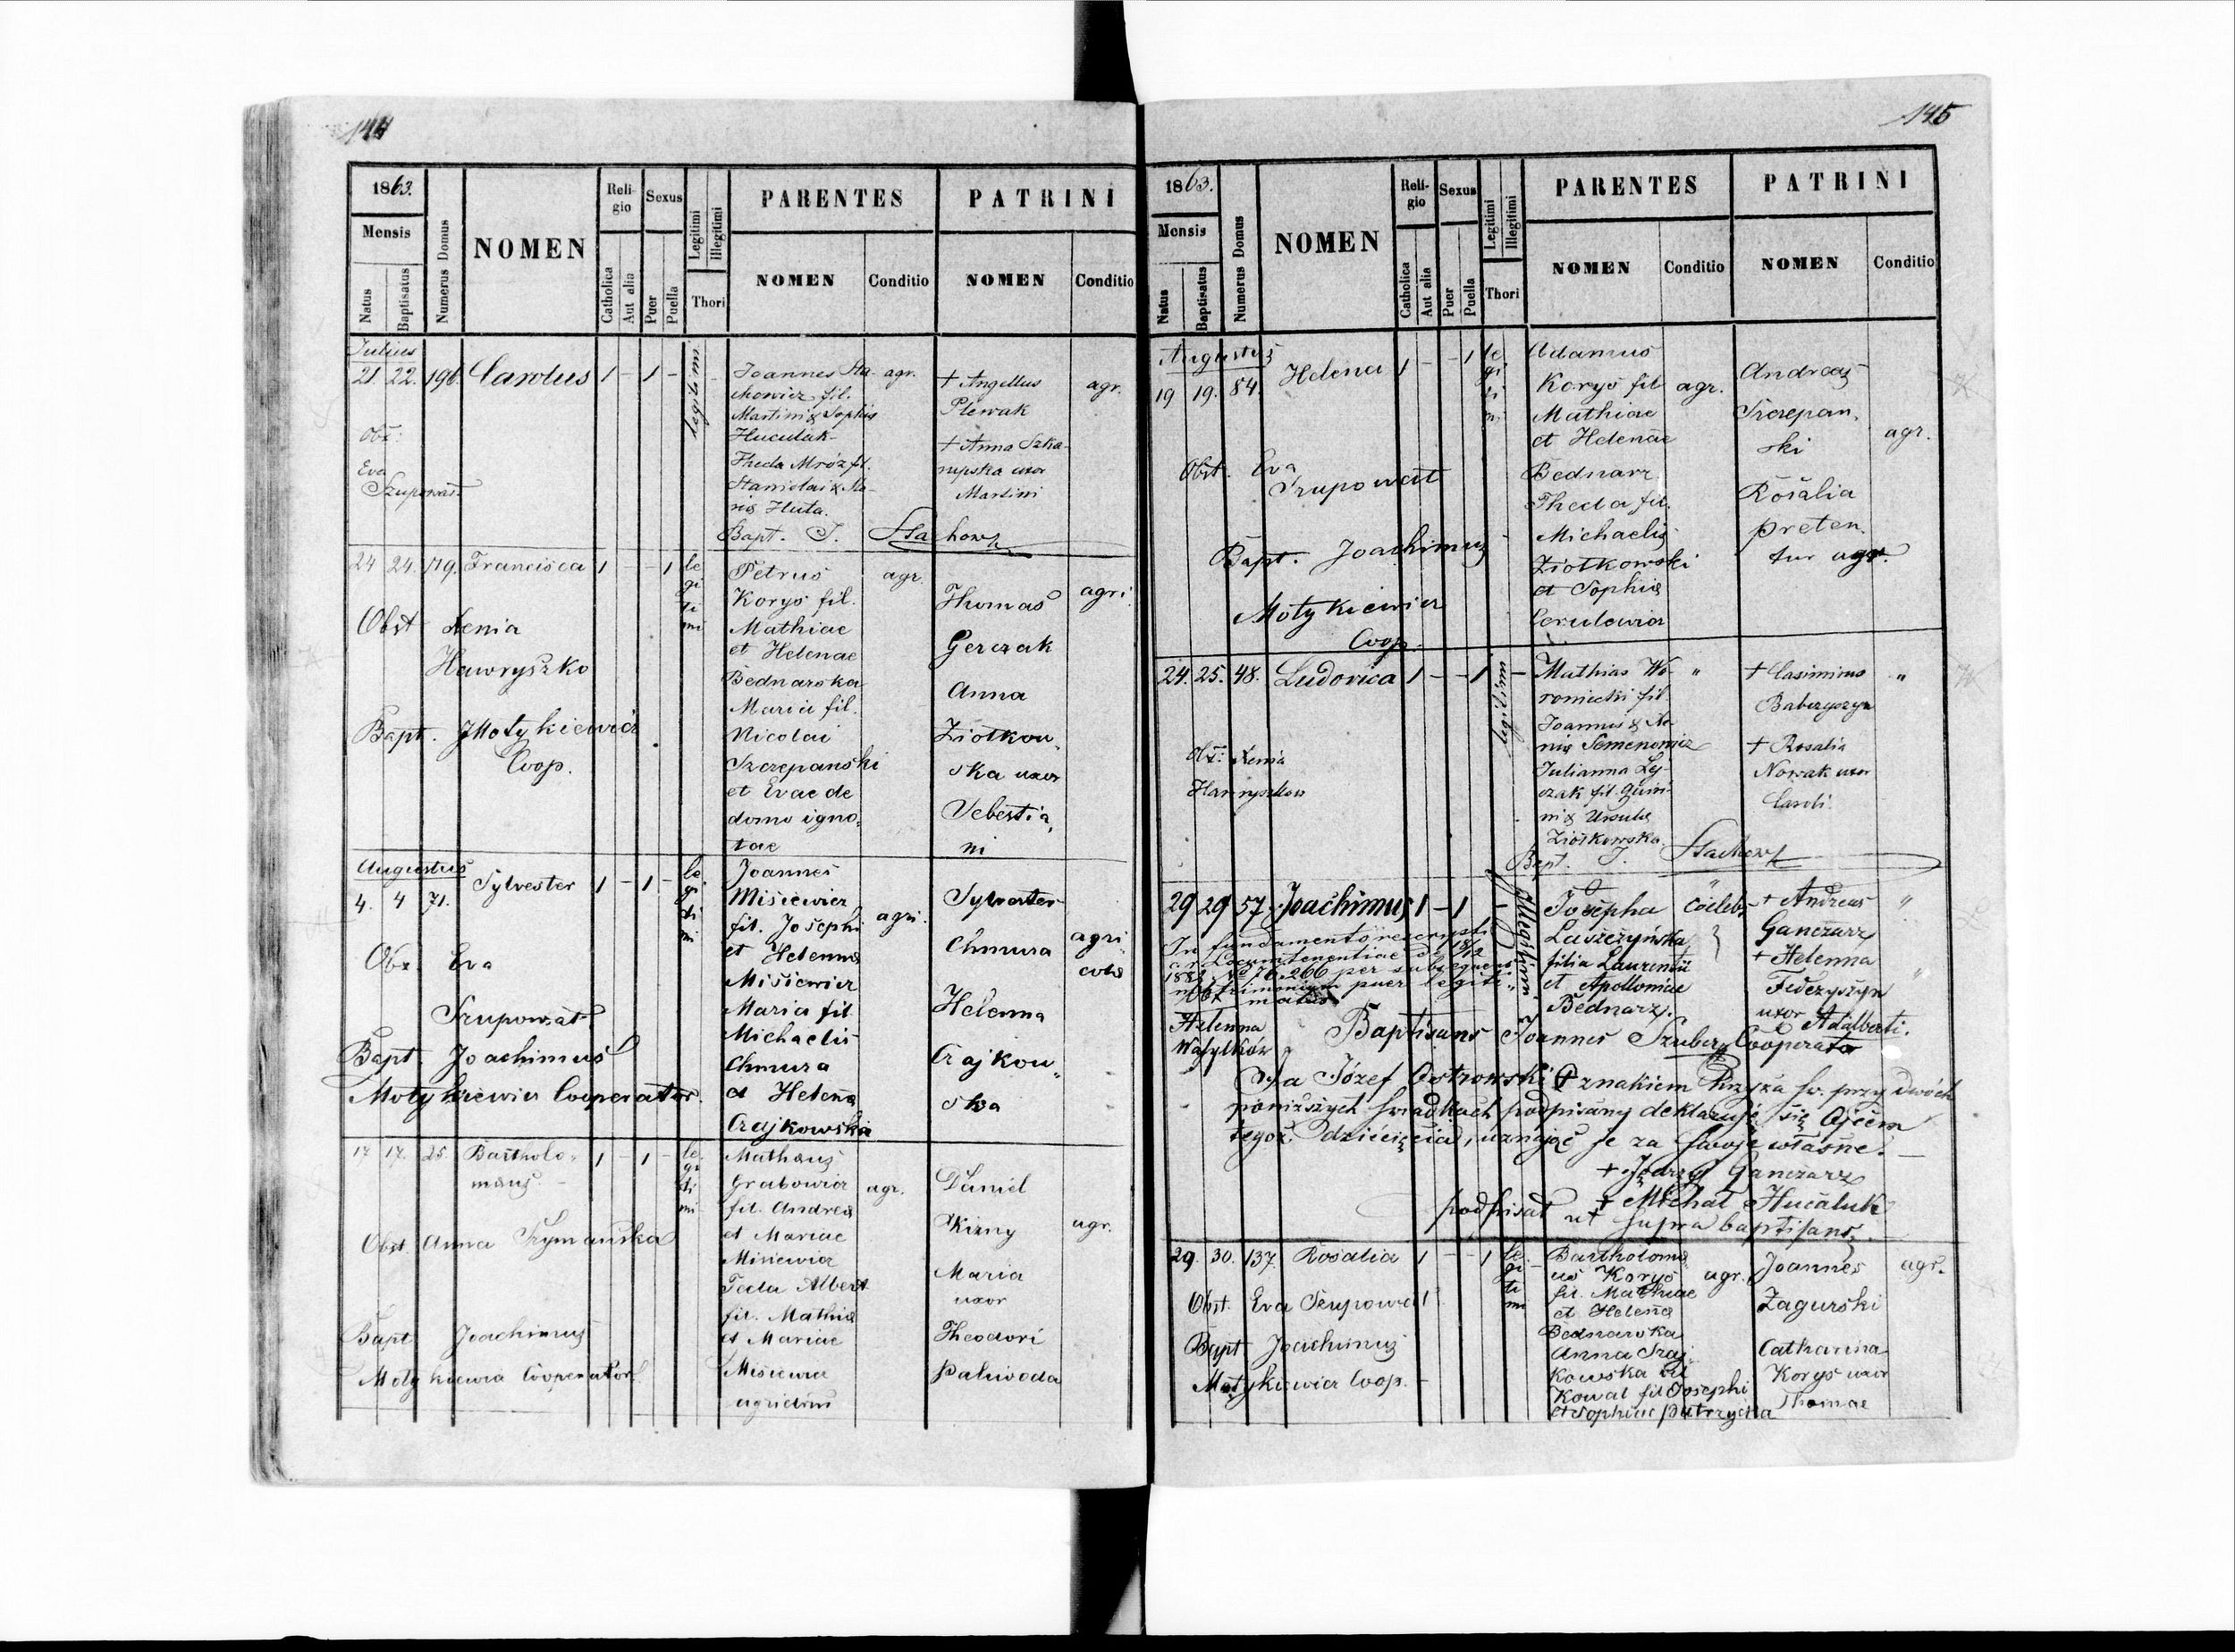 144
1863.
Mensis
Natus
Baptisatus
Numerus Domus
NOMEN
Religio
Catholica
Aut alia
Sexus
Puer
Puella
Legitimi
Illegitimi
Thori
PARENTES
NOMEN
Conditio
PATRINI
NOMEN
Conditio
Julius
21. 22. 196. Carolus 1 - 1 - legitimi
Obx:
Eva
Szupowat
Joannes Sta- agr.
chowicz fil.
Martini & Sophia
Huculak
Theda Mróz fil.
Stanislai & Ma-
ria Huta.
Bapt. J. Stachow
+ Angellus agr.
Plewak
+ Anna Szka-
rupska uxor
Martini
24 24. 119. Francisca 1 - - 1 legitimi
Obst Xenia
Hawryszko
Bapt. Motykiewicz
Coop.
Petrus agr.
Korys fil.
Mathiae
et Helenae
Bednarska
Maria fil.
Nicolai
Szczepanski
et Evae de
domo igno-
tae
Thomas agri.
Gerczak
Anna
Ziołkow-
ska uxor
Sebestia-
ni
Augustus
4. 4 71. Sylvester 1 - 1 - legitimi
Obx. Eva
Szupowat
Bapt. Joachimus
Motykiewicz Cooperator.
Joannes
Misiewicz
fil. Josephi agri.
et Helenna
Misiewicz
Maria fil
Michaelis
Chmura
et Helena
Czajkowska
Sylwester
Chmura agri
cola
Helenna
Czajkow-
ska
17 17. 25. Bartholo-
maus 1 - 1 - legitimi
Obst. Anna Szymańska
Bapt Joachimus
Motykiewicz Cooperator
Mathaus
Grabowicz agr.
fil. Andrea
et Mariae
Misiewicz
Teda Albert
fil. Mathia
et Mariae
Misiewicz
Daniel
Kizny agr.
Maria
uxor
Theodori
Paliwoda
145
1863.
Mensis
Natus
Baptisatus
Numerus Domus
NOMEN
Religio
Catholica
Aut alia
Sexus
Puer
Puella
Legitimi
Illegitimi
Thori
PARENTES
NOMEN
Conditio
PATRINI
NOMEN
Conditio
Augustus
19 19. 84. Helena 1 - - 1 legitimi
Obst. Eva
Szupowat
Bapt. Joachimus
Motykiewicz
Coop.
Adamus
Korys fil agr.
Mathiae
et Helenae
Bednarz
Theda fil.
Michaelis
Ziołkowski
et Sophia
Andreas
Szczepan-
ski agr.
Rosalia
preten-
tur agr.
24. 25. 48. Ludovica 1 - - 1 legitimi
Obx: Xenia
Hawryszkow
Mathias Wo- "
ronicki fil
Joannis & Ma-
ria Semenowicz
Julianna Lej-
czak fil. Quiri-
ni & Ursula
Ziołkowska
Bapt. J. Stachow
+ Casimirus "
Babczyszyn
+ Rosalia
Nowak uxor
Caroli.
29 29 57. Joachimus 1 - 1 Illegitimi
In fundamento rescripti
c.r. Locumtenentiae 18/12
1881 No 70.266 per subsequens
matrimonium puer legiti-
matus
Obx
Helenna
Wasylków
Josepha Coelebs
Łuszczyńska
filia Laurentii
et Apolloniae
Bednarz.
+ Andreas "
Ganczarz
+ Helenna
Fedczyszyn "
uxor Adalberti.
Baptisans Joannes Szuber Cooperator
Ja Józef Ostrowski + znakiem Krzyża św. przy dwóch
poniższych świadkach podpisany deklaruję się Ojcem
tegoż dziecięcia, uznając je za swoje własne.
+ Jędrzej Ganczarz
+ Michał Hucaluk
podpisał ut supra baptisans.
29. 30. 137. Rosalia 1 - - 1 legitimi
Obst. Eva Szupowat
Bapt Joachimus
Motykiewicz Coop.
Bartholoma-
us Korys agr.
fil. Mathiae
et Helena
Bednarska
Anna Czaj-
kowska vel
Kowal fil Josephi
et Sophiae
Joannes agr.
Zagurski
Catharina
Korys uxor
Thomae